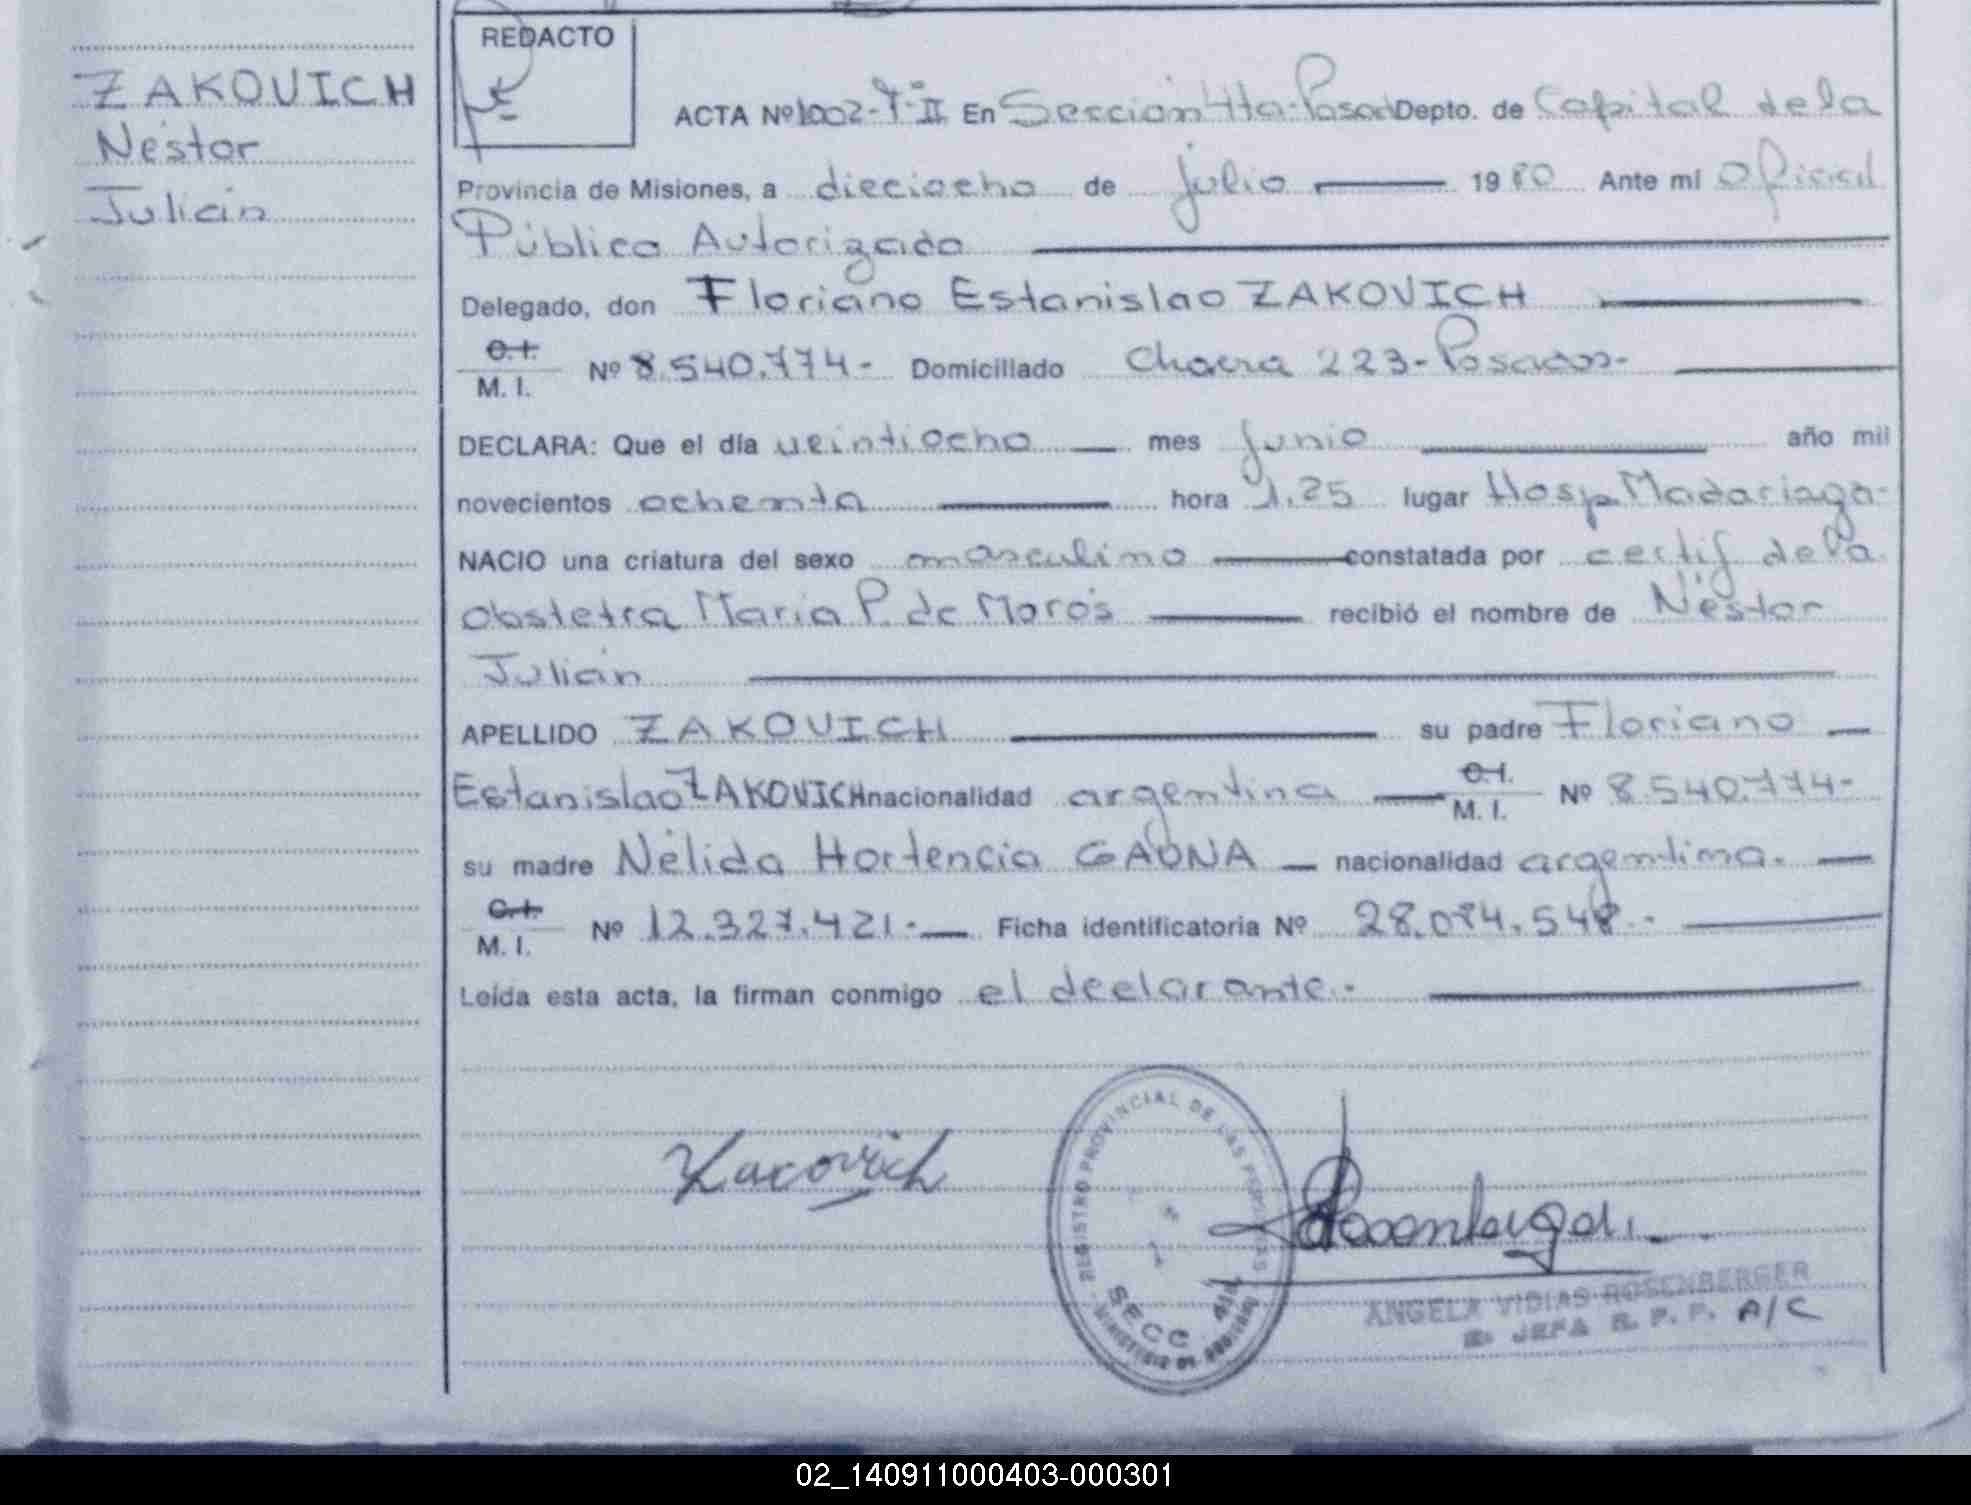 ZAKOVICH
Néstor
Julián
REDACTO
ACTA Nº 1002-T-II En Sección 4ta-Posad Depto. de Capital de la
Provincia de Misiones, a dieciocho de julio 1980 Ante mí Oficial
Público Autorizado
Delegado, don Floriano Estanislao ZAKOVICH
C.I.
M. I. Nº 8.540.774- Domiciliado Chacra 223-Posadas-
DECLARA: Que el día veintiocho mes junio año mil
novecientos ochenta hora 1.25 lugar Hosp Madariaga-
NACIO una criatura del sexo masculino constatada por certif de la
obstetra María P. de Moros recibió el nombre de Néstor
Julián
APELLIDO ZAKOVICH su padre Floriano
Estanislao ZAKOVICH nacionalidad argentina C.I. M. I. Nº 8.540.774-
su madre Nélida Hortencia GAONA nacionalidad argentina.
C.I.
M. I. Nº 12.327.421.- Ficha identificatoria Nº 28.084.548.-
Leída esta acta, la firman conmigo el declarante.-
Zacovich
REGISTRO PROVINCIAL DE LAS PERSONAS
SECC. 4ta
Rosenberger
ANGELA VIDIAS ROSENBERGER
JEFA R. P. P. A/C
02_140911000403-000301